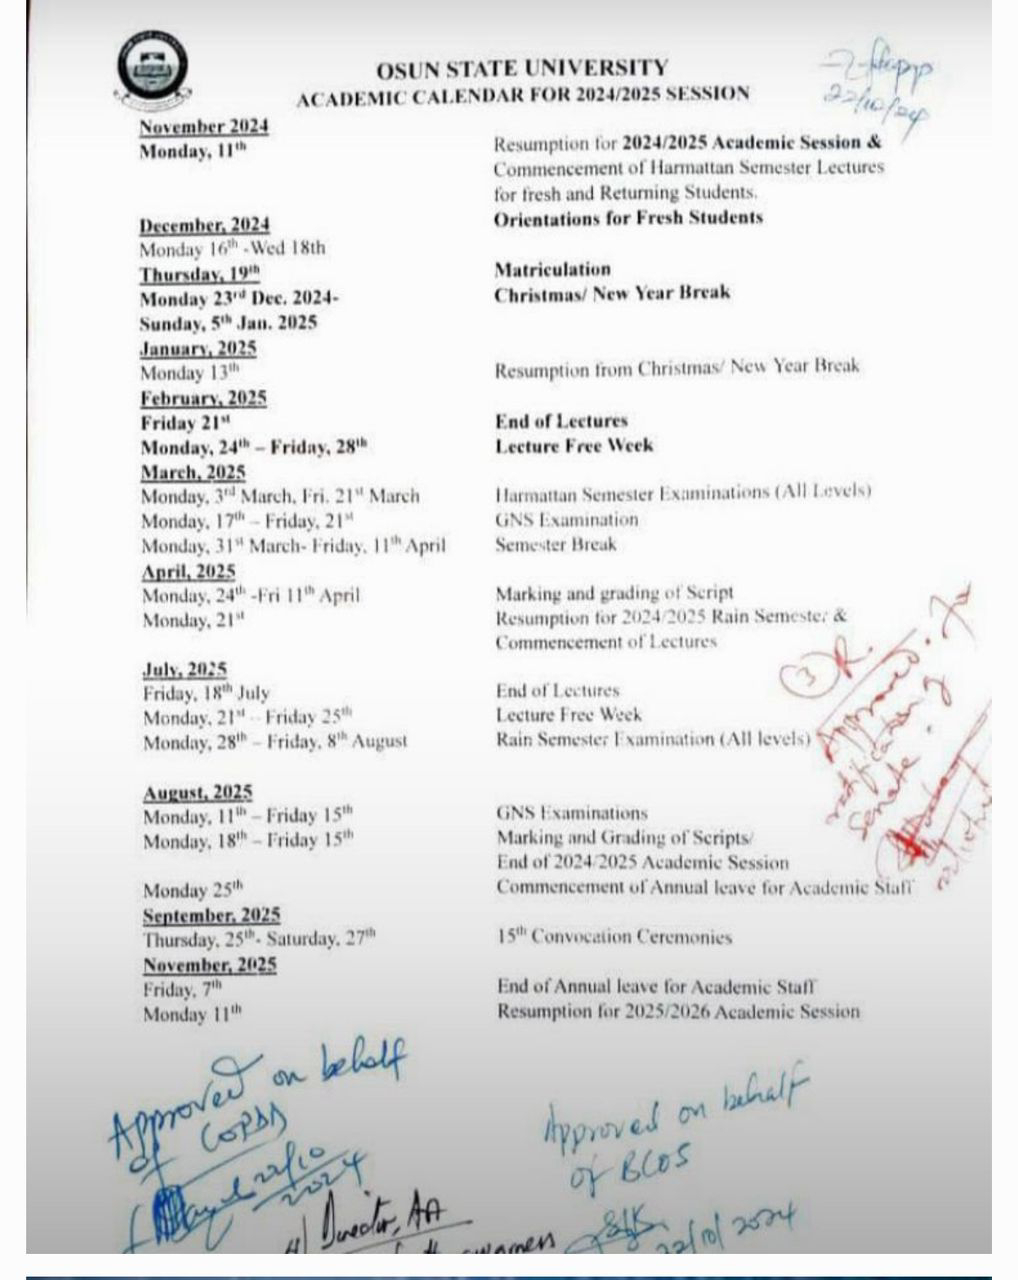 OSUN STATE UNIVERSITY
ACADEMIC CALENDAR FOR 2024/2025 SESSION
22/10/24
November 2024
Monday, 11th Resumption for 2024/2025 Academic Session &
Commencement of Harmattan Semester Lectures
for fresh and Returning Students.
December, 2024 Orientations for Fresh Students
Monday 16th -Wed 18th
Thursday, 19th Matriculation
Monday 23rd Dec. 2024- Christmas/ New Year Break
Sunday, 5th Jan. 2025
January, 2025
Monday 13th Resumption from Christmas/ New Year Break
February, 2025
Friday 21st End of Lectures
Monday, 24th – Friday, 28th Lecture Free Week
March, 2025
Monday, 3rd March, Fri. 21st March Harmattan Semester Examinations (All Levels)
Monday, 17th – Friday, 21st GNS Examination
Monday, 31st March- Friday, 11th April Semester Break
April, 2025
Monday, 24th -Fri 11th April Marking and grading of Script
Monday, 21st Resumption for 2024/2025 Rain Semester &
Commencement of Lectures
July, 2025
Friday, 18th July End of Lectures
Monday, 21st – Friday 25th Lecture Free Week
Monday, 28th – Friday, 8th August Rain Semester Examination (All levels)
August, 2025
Monday, 11th – Friday 15th GNS Examinations
Monday, 18th – Friday 15th Marking and Grading of Scripts/
End of 2024/2025 Academic Session
Monday 25th Commencement of Annual leave for Academic Staff
September, 2025
Thursday, 25th- Saturday, 27th 15th Convocation Ceremonies
November, 2025
Friday, 7th End of Annual leave for Academic Staff
Monday 11th Resumption for 2025/2026 Academic Session
3 R.
Approved.
ratification of
Senate.
Approved on behalf
of COPDA
22/10
2024
Director, AA
Approved on behalf
of BCOS
22/10/2024